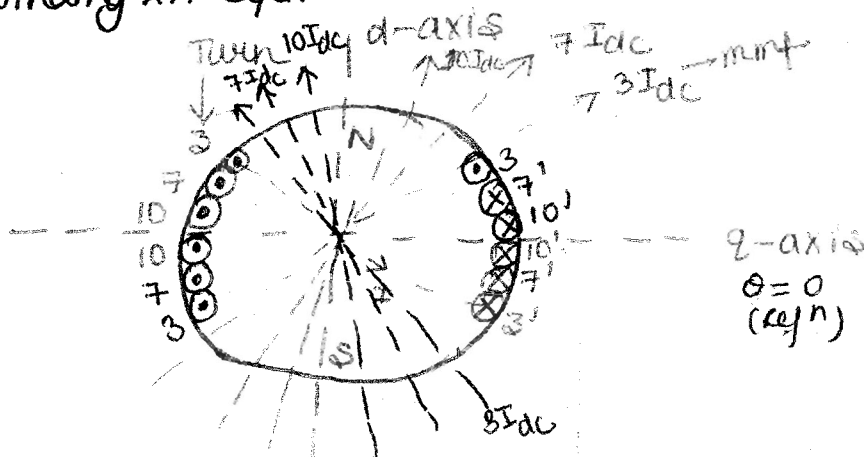 Turn 10Idc d-axis
7Idc 10Idc 7Idc
3Idc mmf
3 N 3
7 7'
10 10'
10 10' q-axis
7 7' θ = 0
3 3' (refn)
S
3Idc